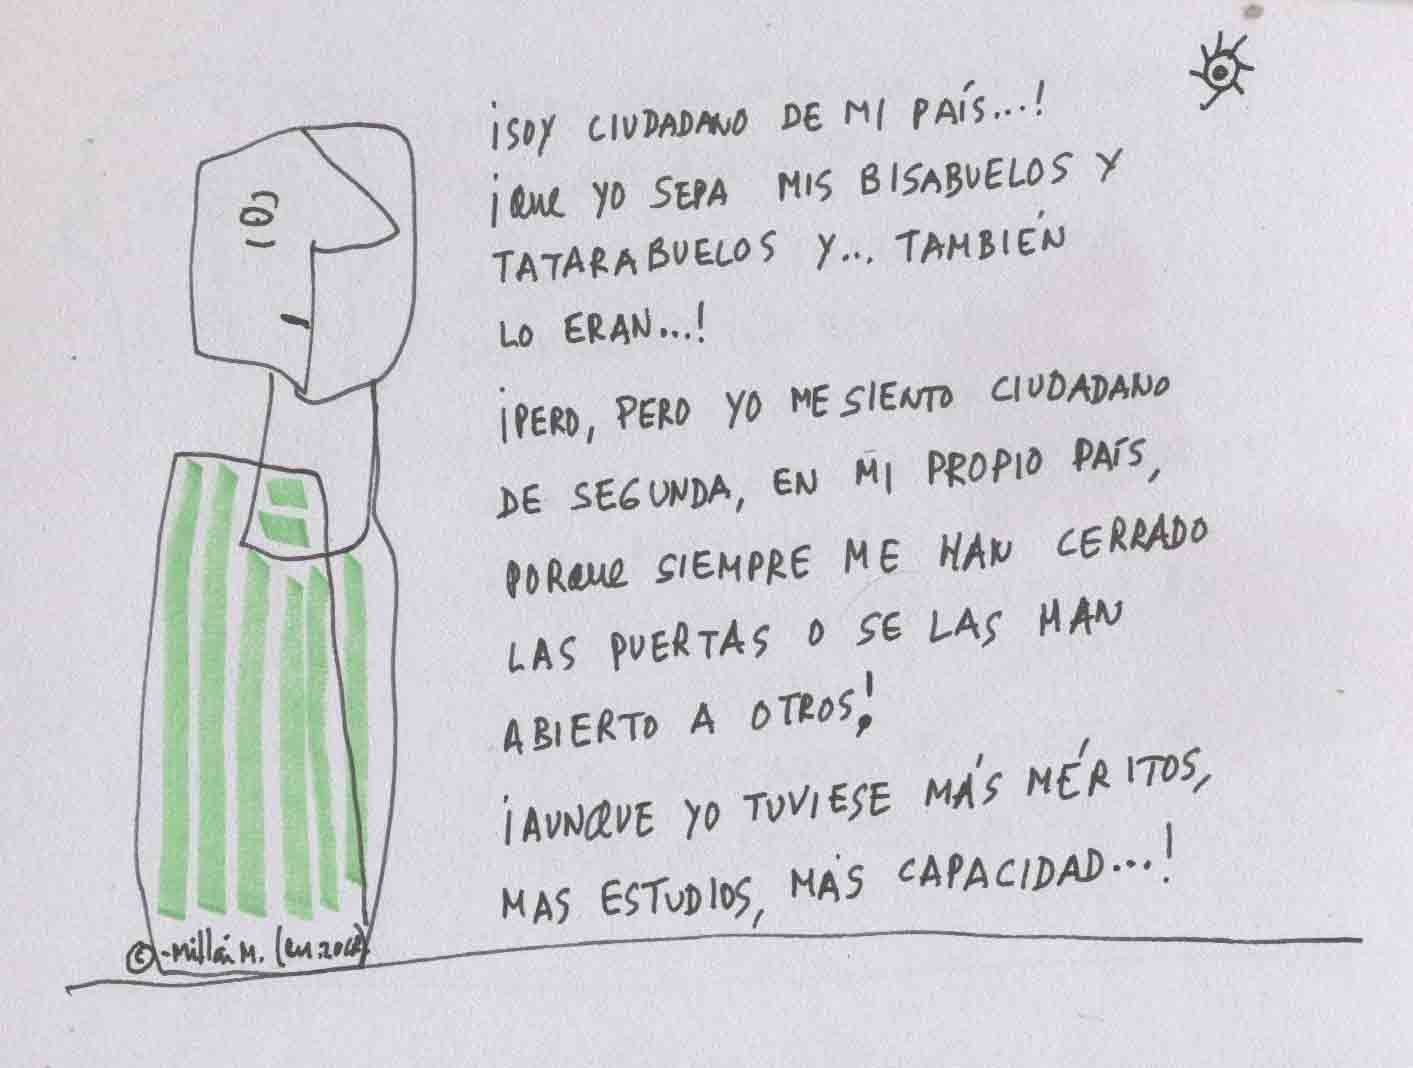 ¡SOY CIUDADANO DE MI PAÍS...!
¡QUE YO SEPA MIS BISABUELOS Y
TATARABUELOS Y... TAMBIÉN
LO ERAN...!
¡PERO, PERO YO ME SIENTO CIUDADANO
DE SEGUNDA, EN MI PROPIO PAÍS,
PORQUE SIEMPRE ME HAN CERRADO
LAS PUERTAS O SE LAS HAN
ABIERTO A OTROS!
¡AUNQUE YO TUVIESE MÁS MÉRITOS,
MAS ESTUDIOS, MÁS CAPACIDAD...!
©-Millán M. (en.